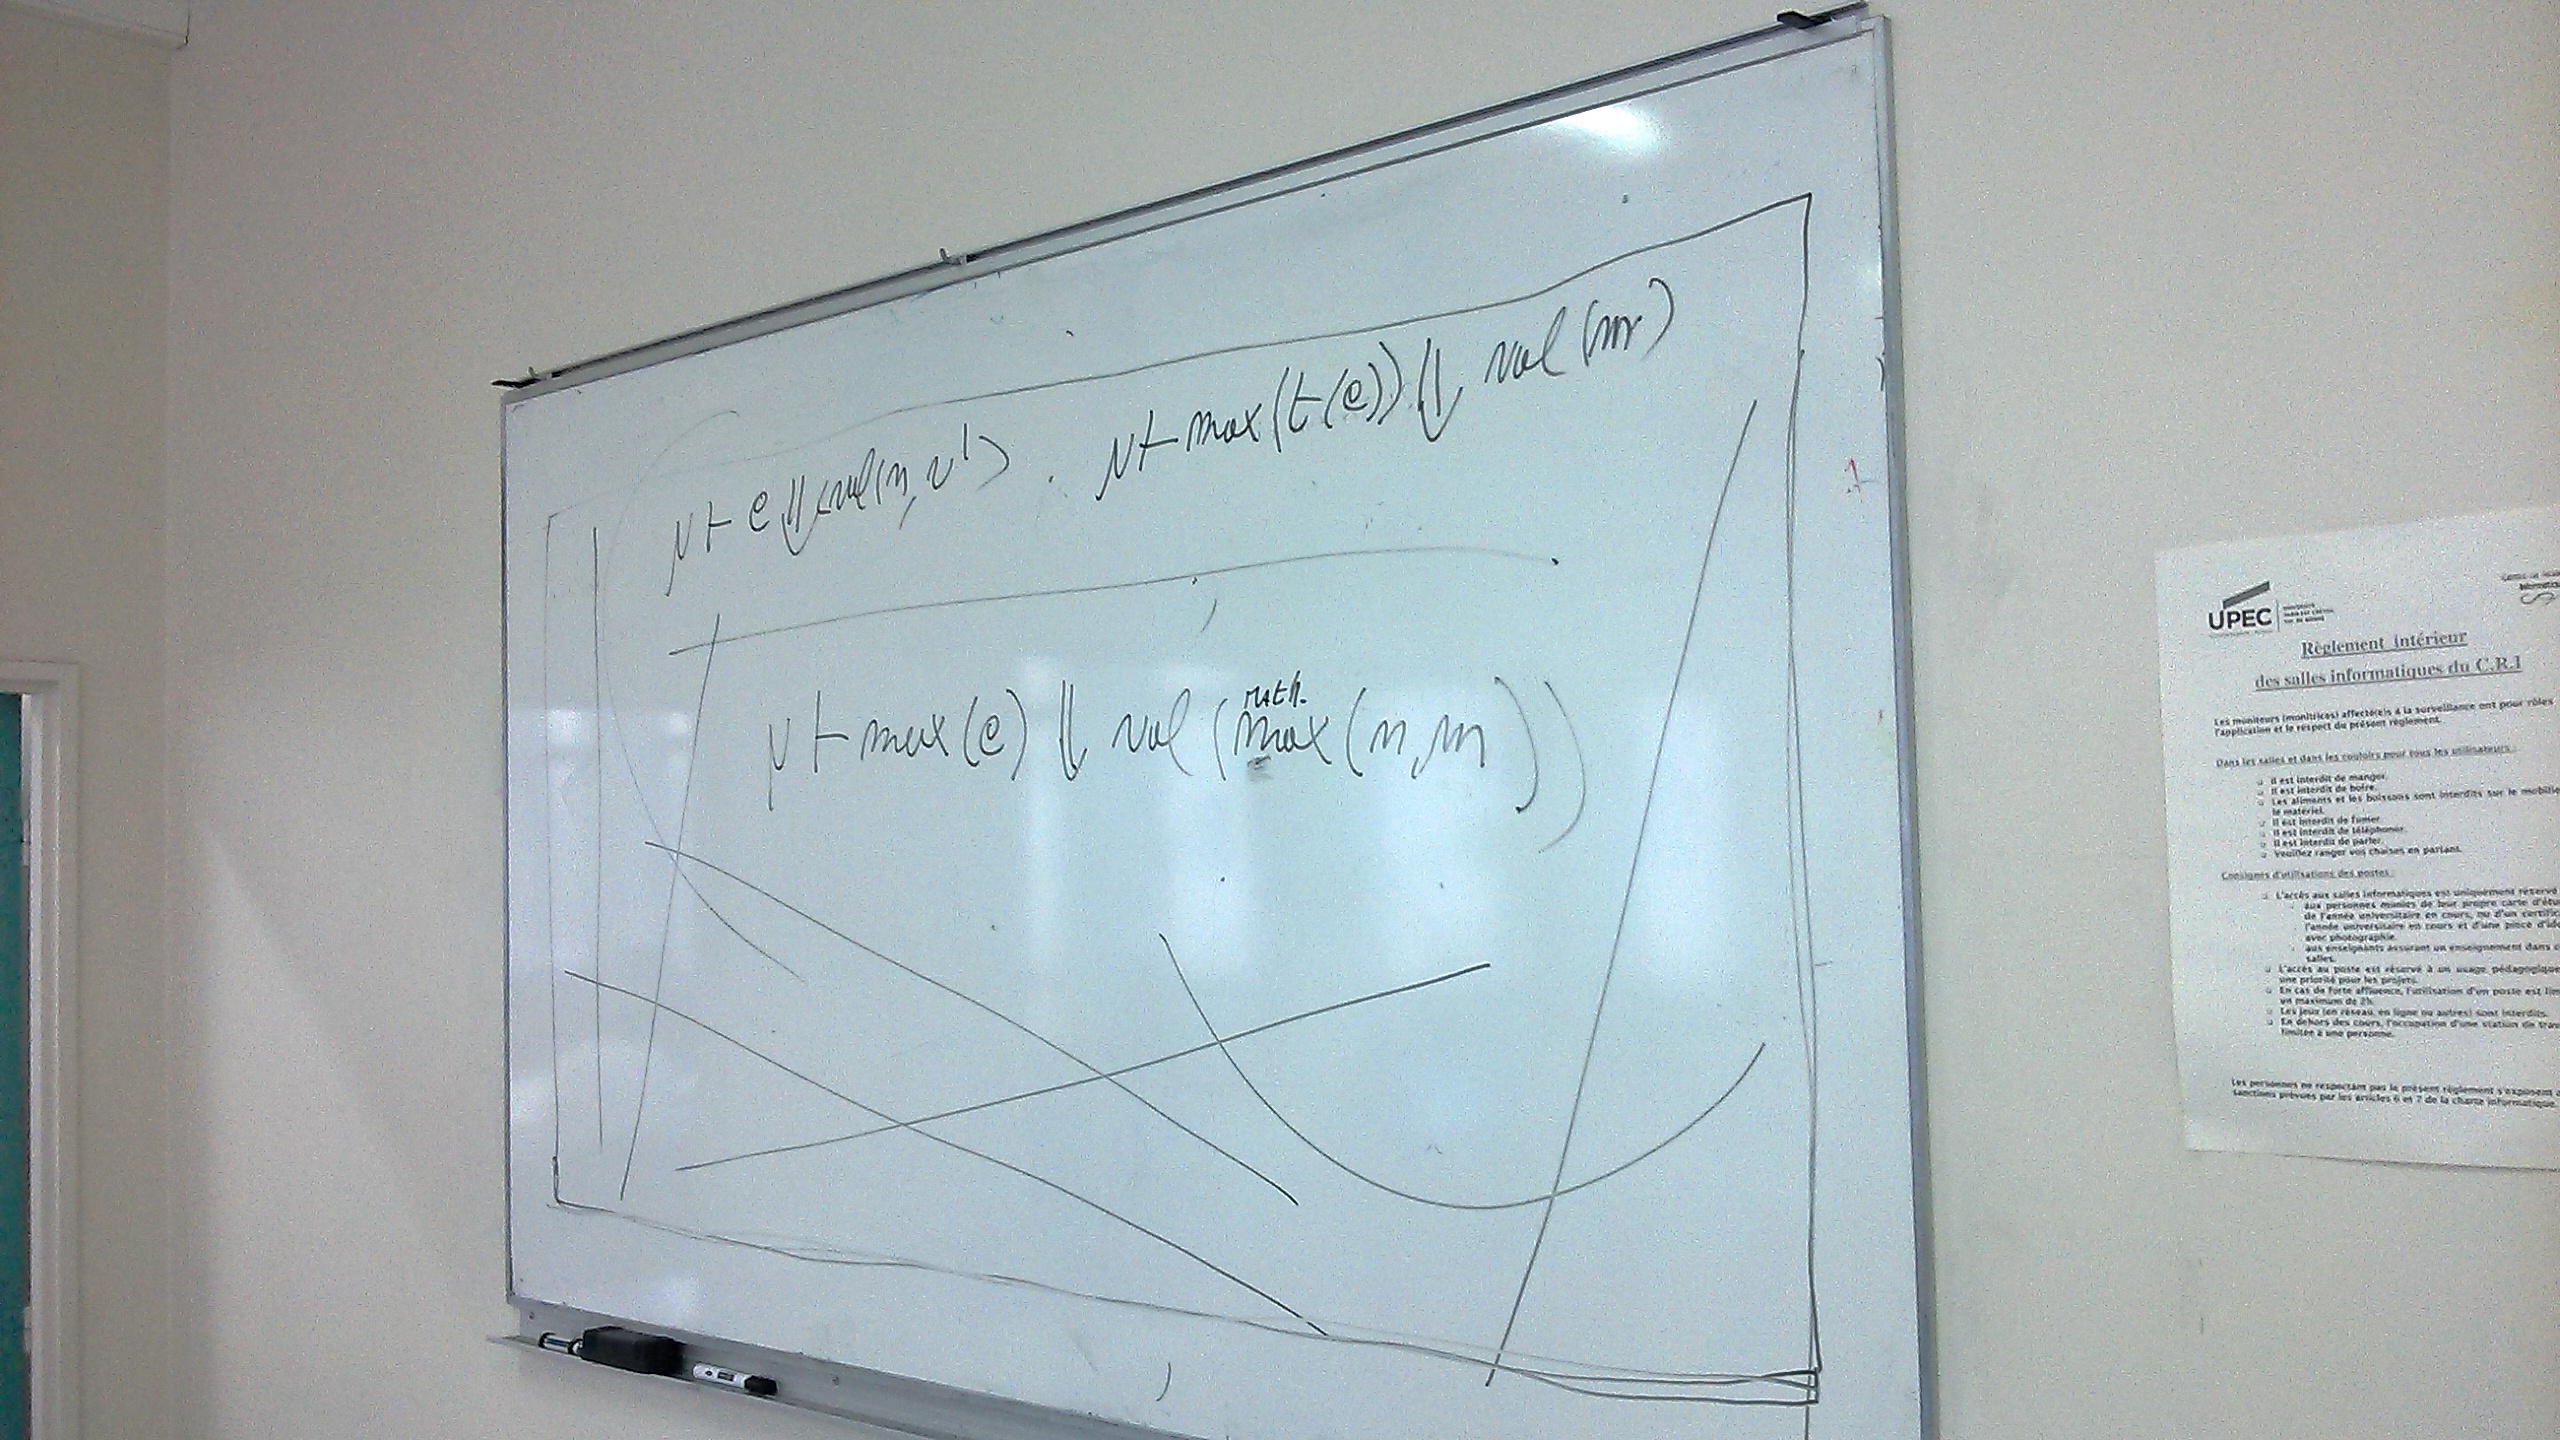 μ ⊢ e ⇓ val(n, v') . μ ⊢ max(t(e)) ⇓ val(m)
μ ⊢ max(e) ⇓ val(max(n, m))
UPEC
Règlement intérieur
des salles informatiques du C.R.I
Les moniteurs (monitrices) affecté(e)s à la surveillance ont pour rôles
l'application et le respect du présent règlement.
Dans les salles et dans les couloirs pour tous les utilisateurs :
Il est interdit de manger.
Il est interdit de boire.
Les aliments et les boissons sont interdits sur le mobilie
le matériel.
Il est interdit de fumer.
Il est interdit de téléphoner.
Il est interdit de parler.
Veuillez ranger vos chaises en partant.
Consignes d'utilisations des postes :
L'accès aux salles informatiques est uniquement réservé
aux personnes munies de leur propre carte d'étu
de l'année universitaire en cours, ou d'un certific
l'année universitaire en cours et d'une pièce d'ide
avec photographie.
aux enseignants assurant un enseignement dans c
salles.
L'accès au poste est réservé à un usage pédagogique
une priorité pour les projets.
En cas de forte affluence, l'utilisation d'un poste est lim
un maximum de 2h.
Les jeux (en réseau, en ligne ou autres) sont interdits.
En dehors des cours, l'occupation d'une station de trav
limitée à une personne.
Les personnes ne respectant pas le présent règlement s'exposent a
sanctions prévues par les articles 6 et 7 de la charte informatique.